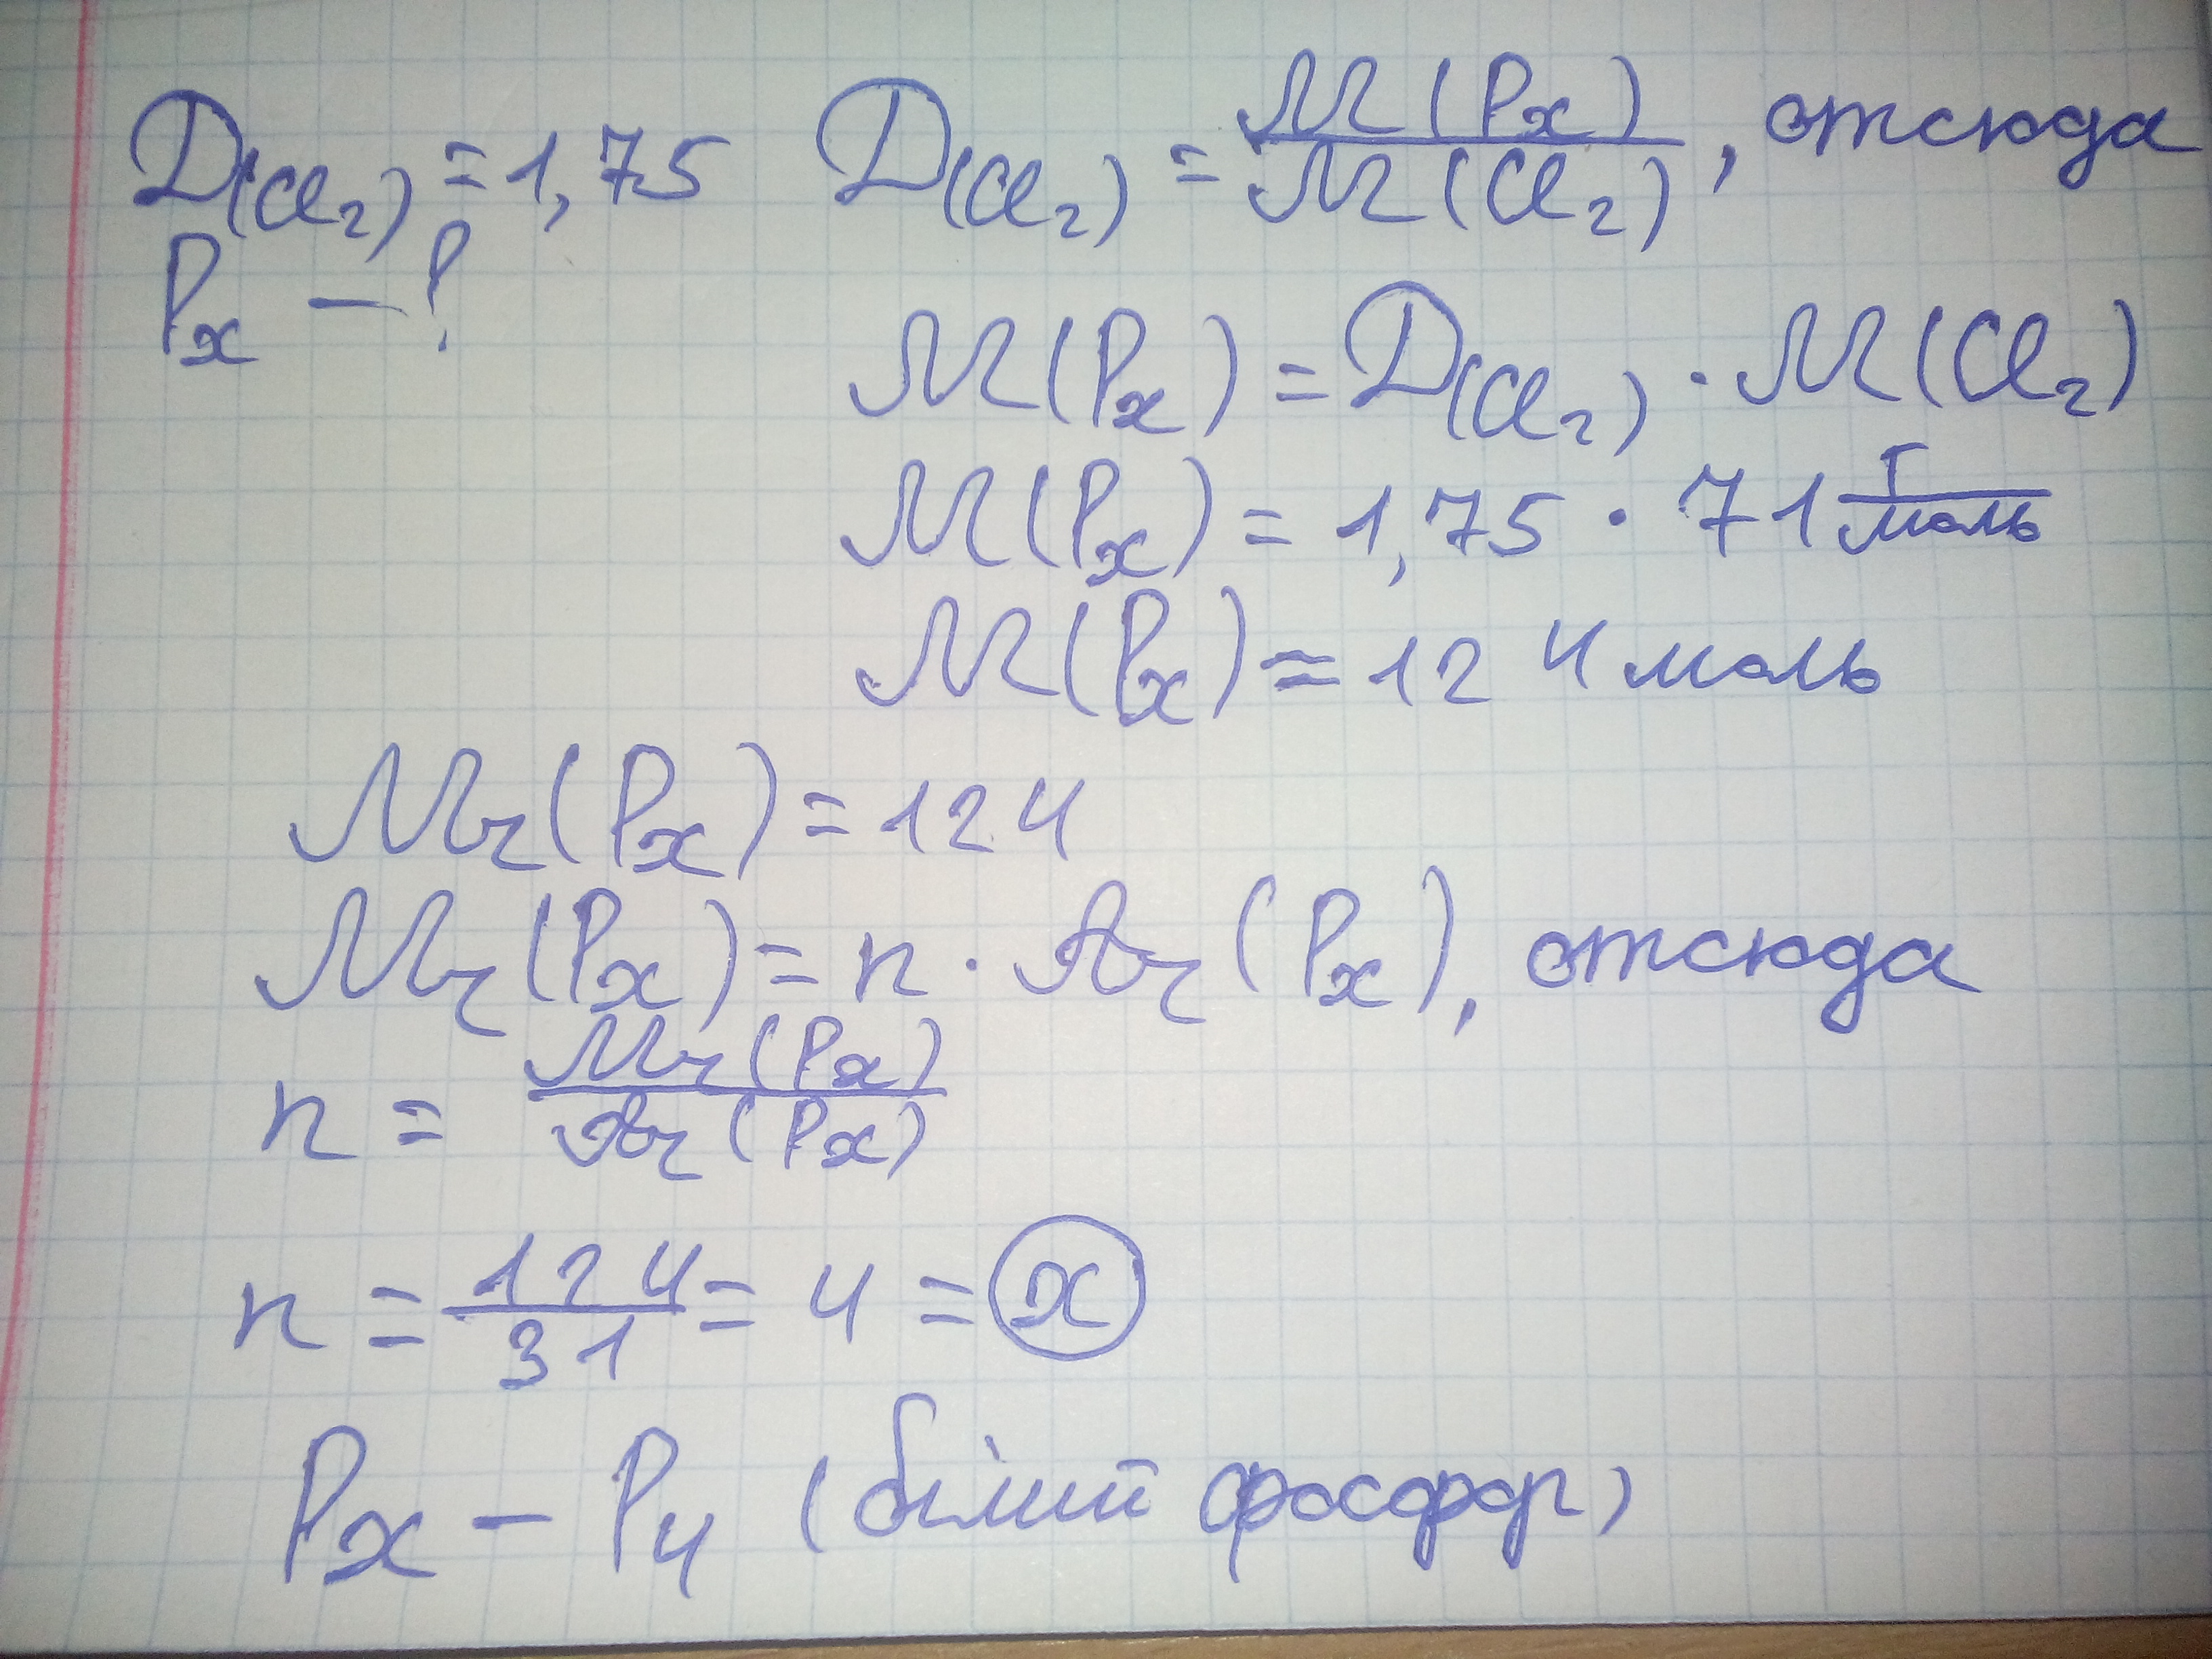 D(Cl₂) = 1,75 D(Cl₂) = M(Pₓ)/M(Cl₂), отсюда
Pₓ - ?
M(Pₓ) = D(Cl₂) · M(Cl₂)
M(Pₓ) = 1,75 · 71 г/моль
M(Pₓ) ≈ 124 моль
Mr(Pₓ) = 124
Mr(Pₓ) = n · Ar(Pₓ), отсюда
n = Mr(Pₓ)/Ar(Pₓ)
n = 124/31 = 4 = x
Pₓ - P₄ (білий фосфор)